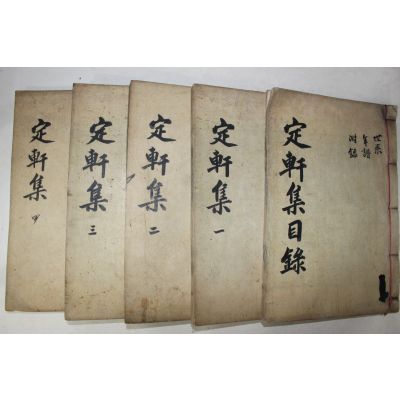 世系
年譜
附錄
定軒集目錄
定軒集 一
定軒集 二
定軒集 三
定軒集 四